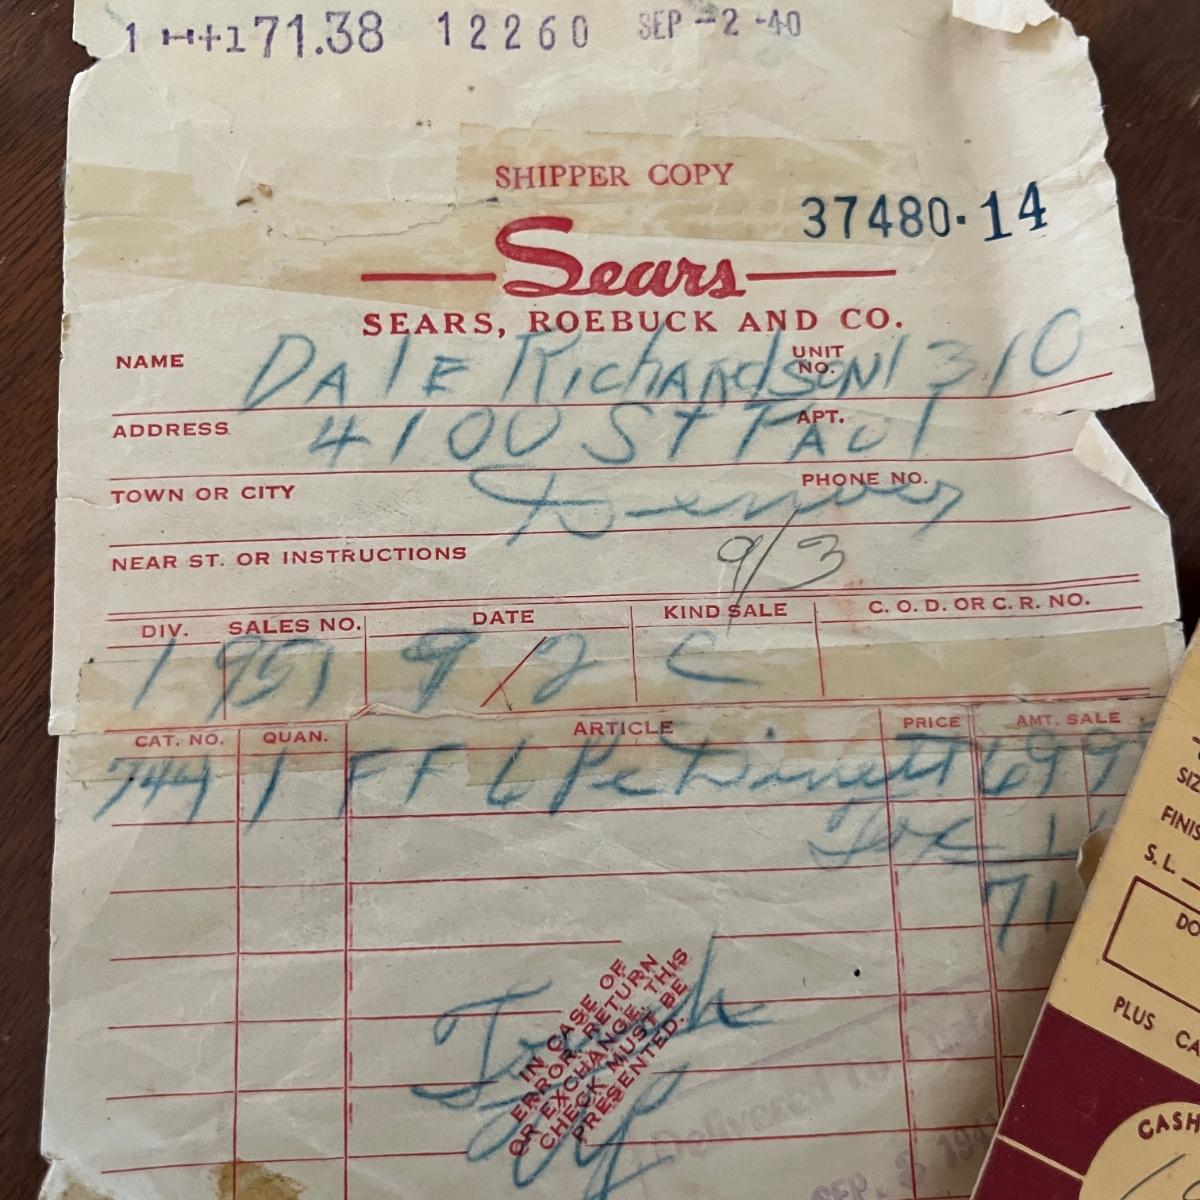 1 171.38 12260 SEP -2 -40
SHIPPER COPY
37480·14
Sears
SEARS, ROEBUCK AND CO.
NAME DAlE RichARdsoN UNIT NO. 1310
ADDRESS 4100 ST PAul APT.
TOWN OR CITY Denver PHONE NO.
NEAR ST. OR INSTRUCTIONS 9/3
DIV. SALES NO. DATE KIND SALE C. O. D. OR C. R. NO.
1 9/2 C
CAT. NO. QUAN. ARTICLE PRICE AMT. SALE
7441 1 FF 6 Pc Dinett 699
Tax 1
71
IN CASE OF
ERROR, RETURN
OR EXCHANGE, THIS
CHECK MUST BE
PRESENTED.
Delivered to
SEP. 3 194
SIZ
FINIS
S. L.
DO
PLUS CA
CASH